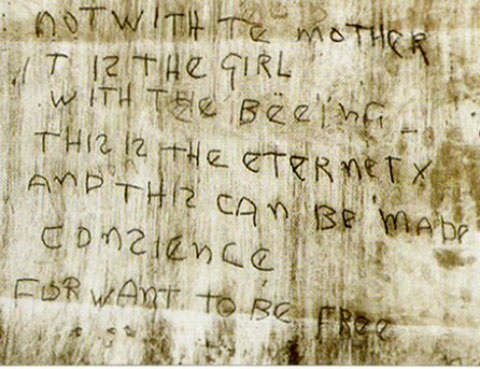 NOT WITH TE MOTHER
IT IS THE GIRL
WITH THE BËEING
THIS IS THE ETERNETY
AND THIS CAN BE MADE
CONSIENCE
FOR WANT TO BE FREE